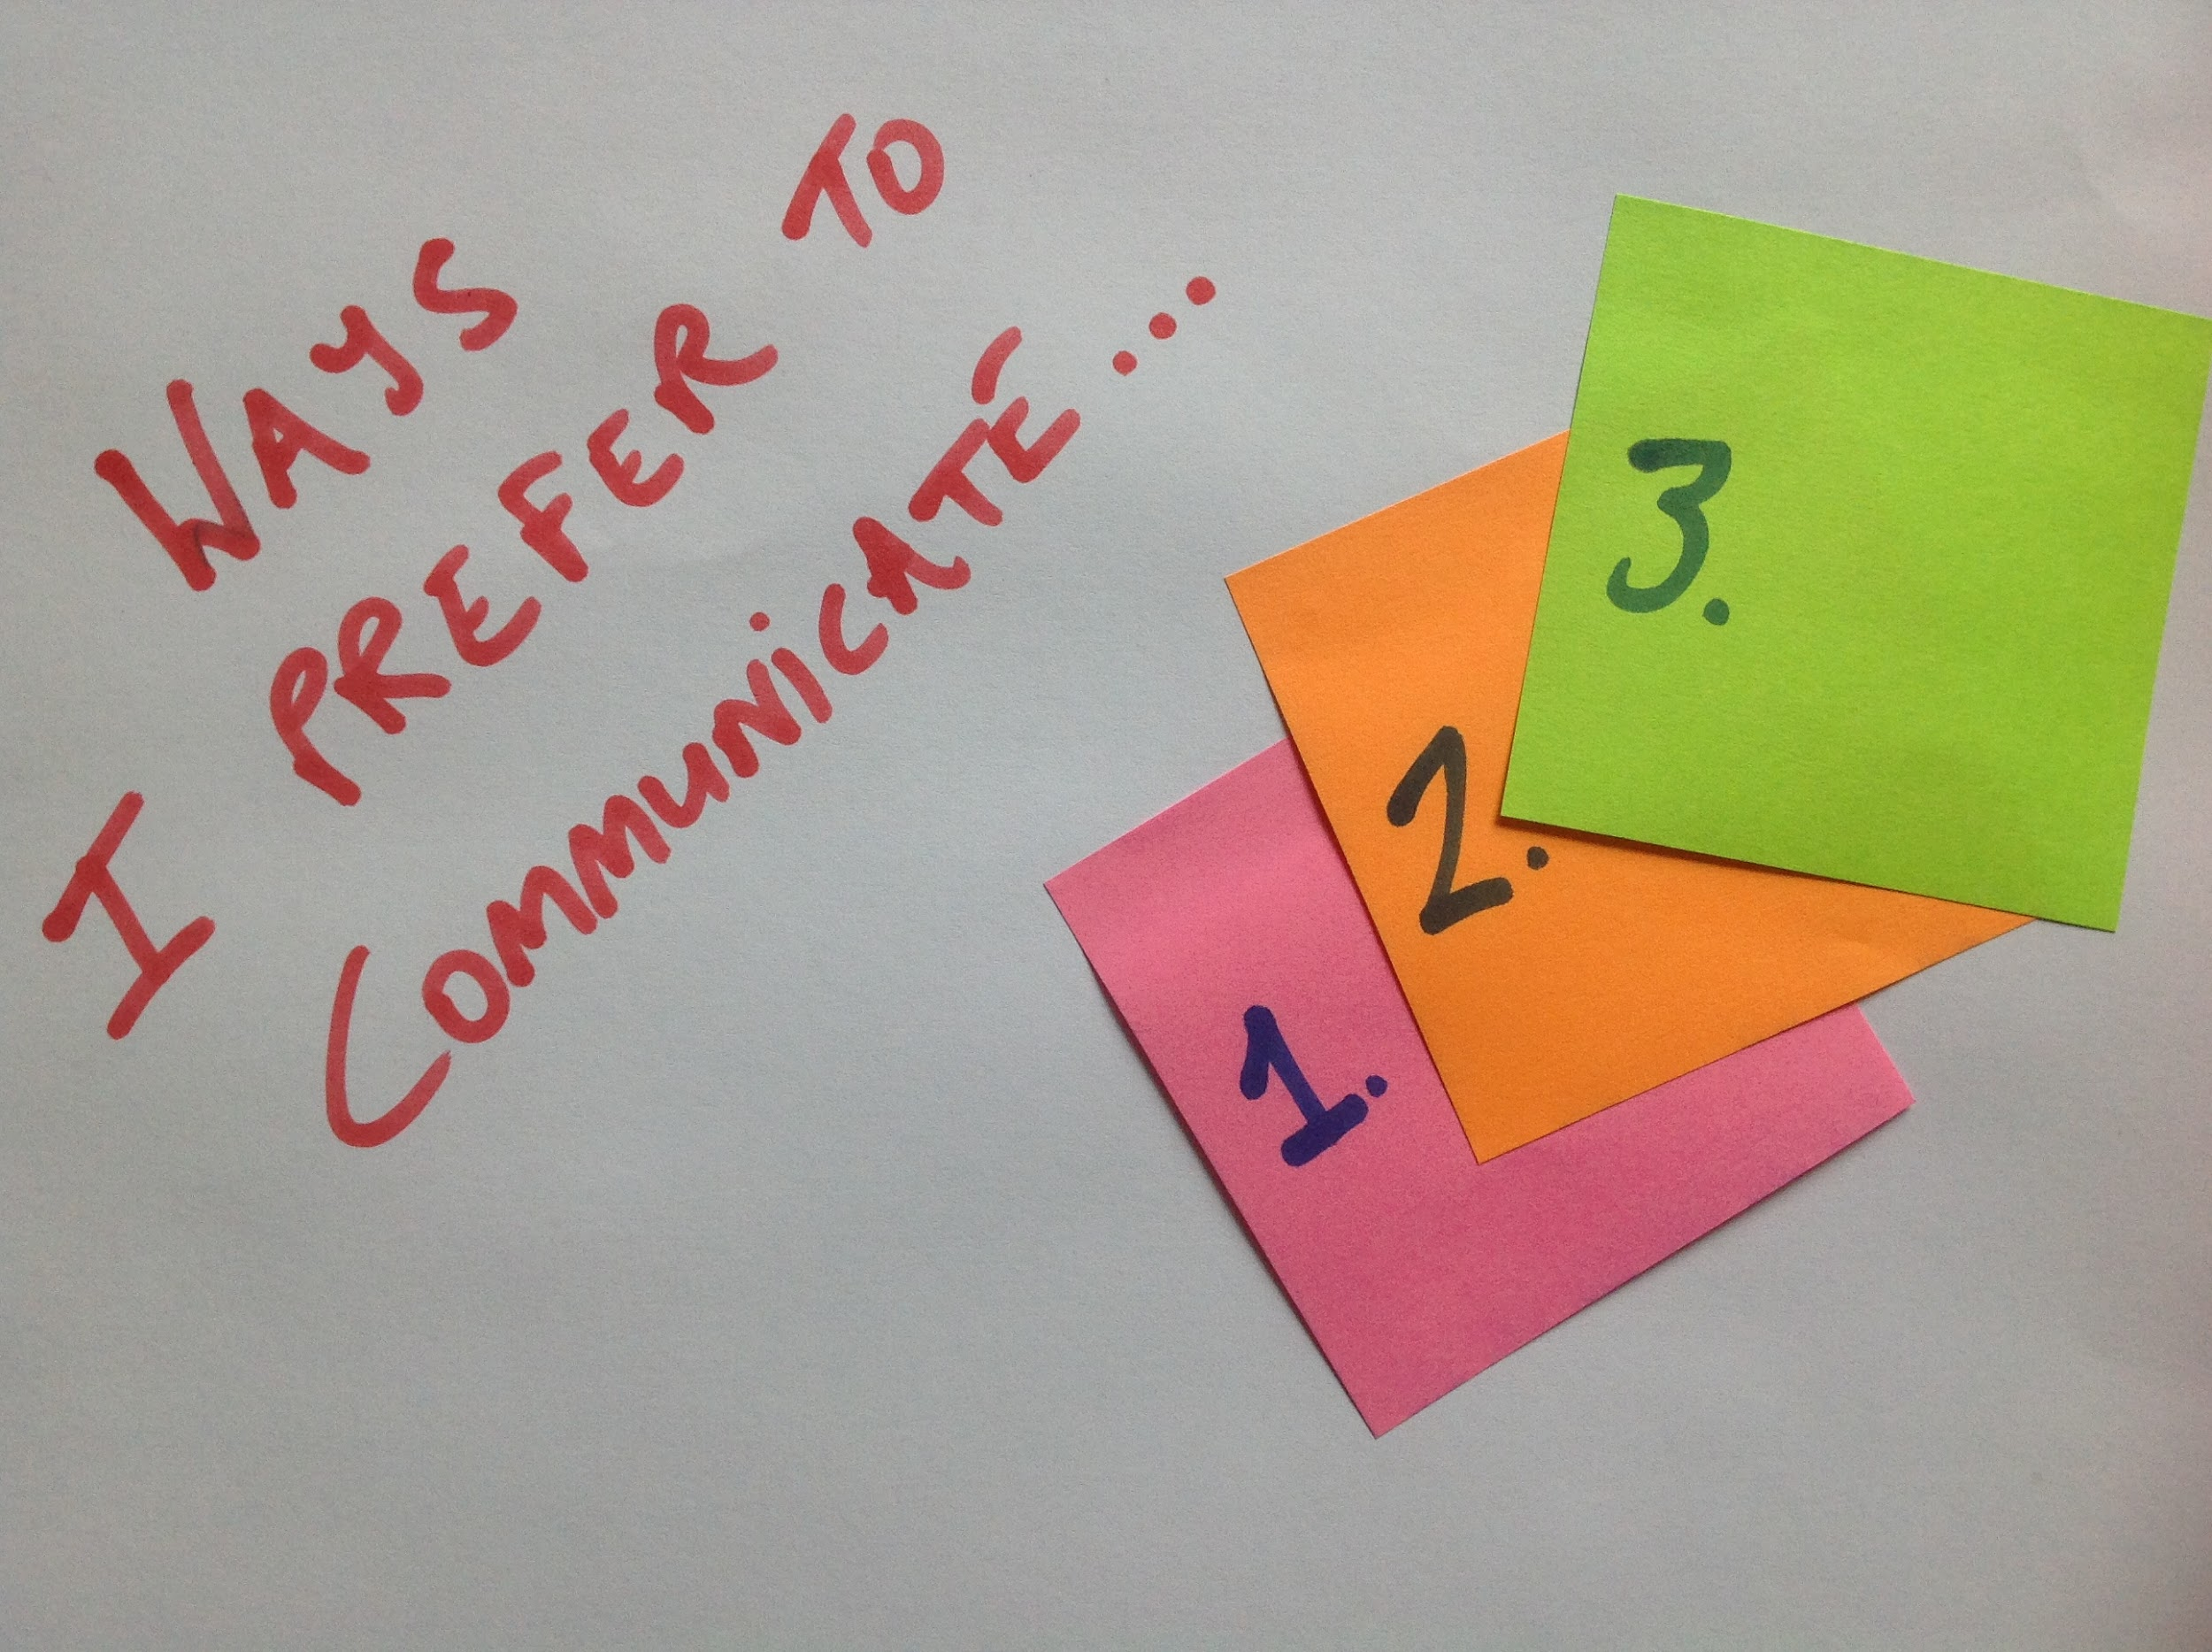 WAYS
I PREFER TO
COMMUNICATE...
1.
2.
3.